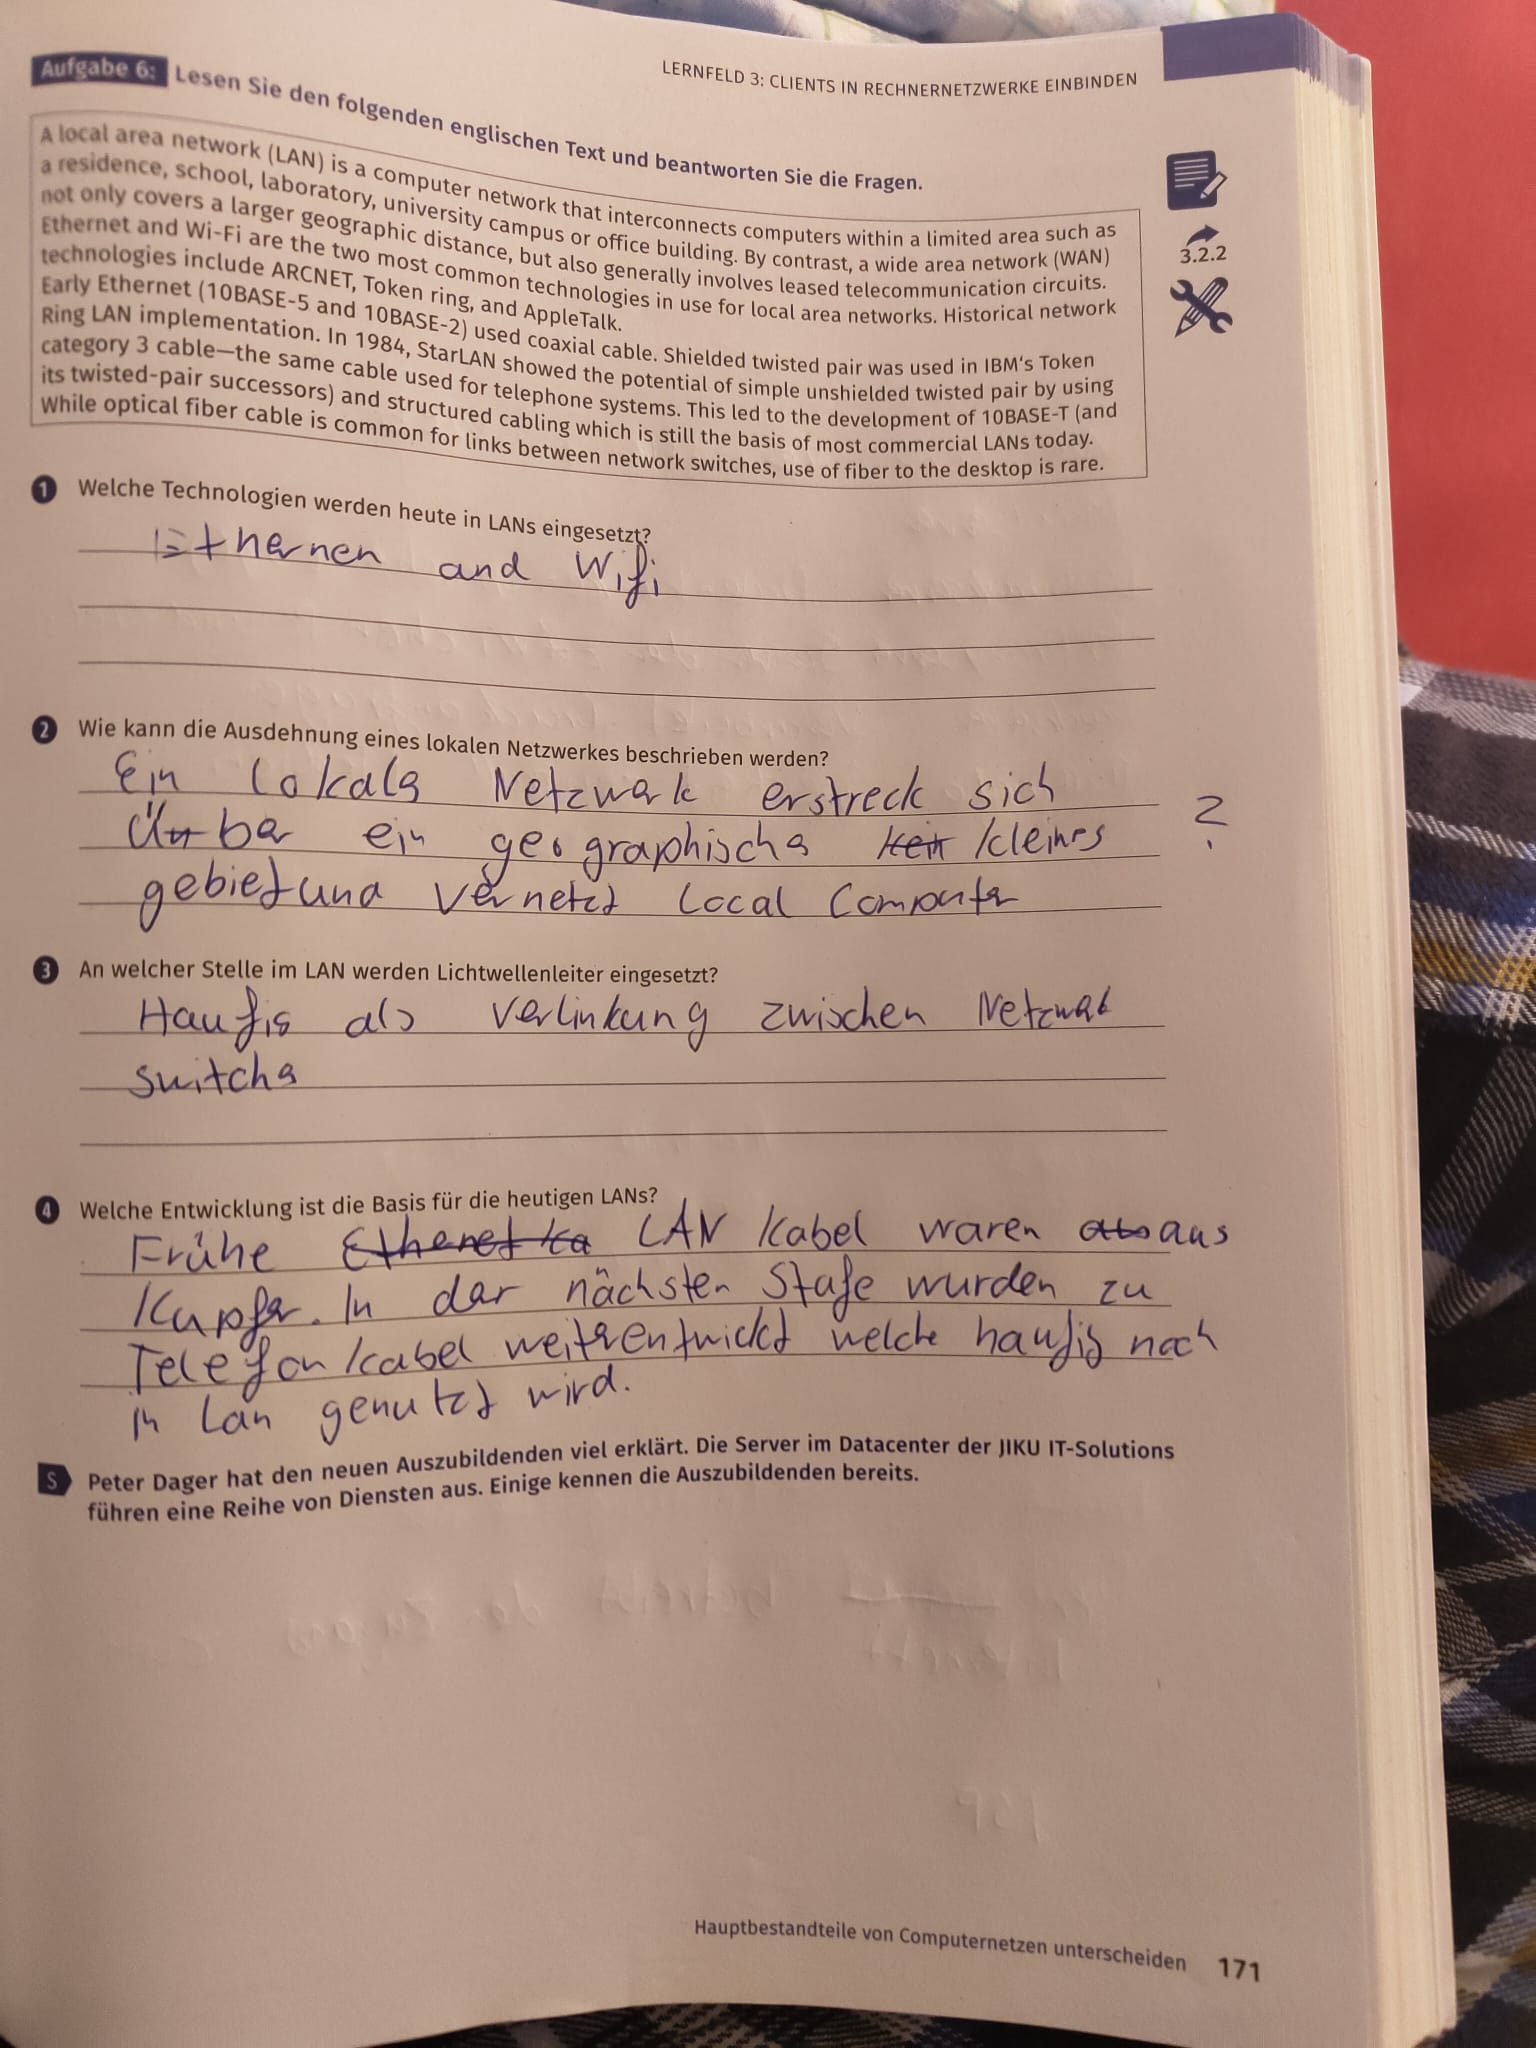 LERNFELD 3: CLIENTS IN RECHNERNETZWERKE EINBINDEN
Aufgabe 6: Lesen Sie den folgenden englischen Text und beantworten Sie die Fragen.
A local area network (LAN) is a computer network that interconnects computers within a limited area such as
a residence, school, laboratory, university campus or office building. By contrast, a wide area network (WAN)
not only covers a larger geographic distance, but also generally involves leased telecommunication circuits.
Ethernet and Wi-Fi are the two most common technologies in use for local area networks. Historical network
technologies include ARCNET, Token ring, and AppleTalk.
Early Ethernet (10BASE-5 and 10BASE-2) used coaxial cable. Shielded twisted pair was used in IBM's Token
Ring LAN implementation. In 1984, StarLAN showed the potential of simple unshielded twisted pair by using
category 3 cable—the same cable used for telephone systems. This led to the development of 10BASE-T (and
its twisted-pair successors) and structured cabling which is still the basis of most commercial LANs today.
While optical fiber cable is common for links between network switches, use of fiber to the desktop is rare.
3.2.2
1 Welche Technologien werden heute in LANs eingesetzt?
Ethernen and Wifi
2 Wie kann die Ausdehnung eines lokalen Netzwerkes beschrieben werden?
Ein lokals Netzwerk erstreck sich
Über ein geographischs kleines ?
gebiet und vernetzt Local Computer
3 An welcher Stelle im LAN werden Lichtwellenleiter eingesetzt?
Haufig als Verlinkung zwischen Netzwek
switchs
4 Welche Entwicklung ist die Basis für die heutigen LANs?
Frühe Ethenet Ka LAN Kabel waren aus
Kupfer. In der nächsten Stufe wurden zu
Telefon kabel weiterentwickt welche haufig noch
in Lan genutzt wird.
S Peter Dager hat den neuen Auszubildenden viel erklärt. Die Server im Datacenter der JIKU IT-Solutions
führen eine Reihe von Diensten aus. Einige kennen die Auszubildenden bereits.
Hauptbestandteile von Computernetzen unterscheiden 171